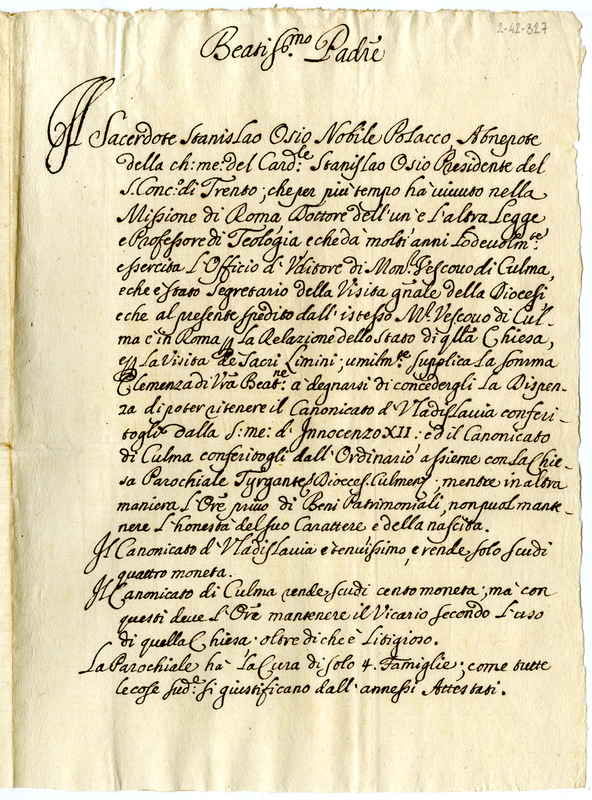 2-42-327
Beatiss.mo Padre
Il Sacerdote Stanislao Osio Nobile Polacco Abnepote
della ch: me: del Card.le Stanislao Osio Presidente del
S. Conc: di Trento; che per più tempo hà uiuuto nella
Missione di Roma Dottore dell'un' e l'altra Legge
e Professore di Teologia e che da molti anni Lodeuolm.te
essercita L'Officio d'Vditore di Mon.r Vescouo di Culma,
e che è stato Segretario della Visita gnãle della Diocesi
e che al presente spedito dall'istesso M.r Vescouo di Cul-
ma è in Roma p La Relazione dello Stato di qlla Chiesa,
e p La Visita de Sacri Limini; umilm.te supplica La somma
Clemenza di Vrã Beat.ne à degnarsi di concedergli La Dispen-
za di poter ritenere il Canonicato d'Vladislauia conferi-
togli dalla S: me: d'Innocenzo XII: ed il Canonicato
di Culma conferitogli dall'Ordinario assieme con La Chie-
sa Parochiale Tÿrgante Dioces. Culmens; mentre in altra
maniera L'Ore priuo di Beni Patrimoniali, non può mante-
nere L'honestà del suo Carattere e della nascita.
Il Canonicato d'Vladislauia è tenuissimo, e rende solo scudi
quattro moneta.
Il Canonicato di Culma rende scudi cento moneta; mà con
questi deue L'Ore mantenere il Vicario secondo L'uso
di quella Chiesa oltre di che è Litigioso.
La Parochiale hà La Cura di solo 4. Famiglie; come tutte
le cose sud.e si giustificano dall'annessi Attestati.